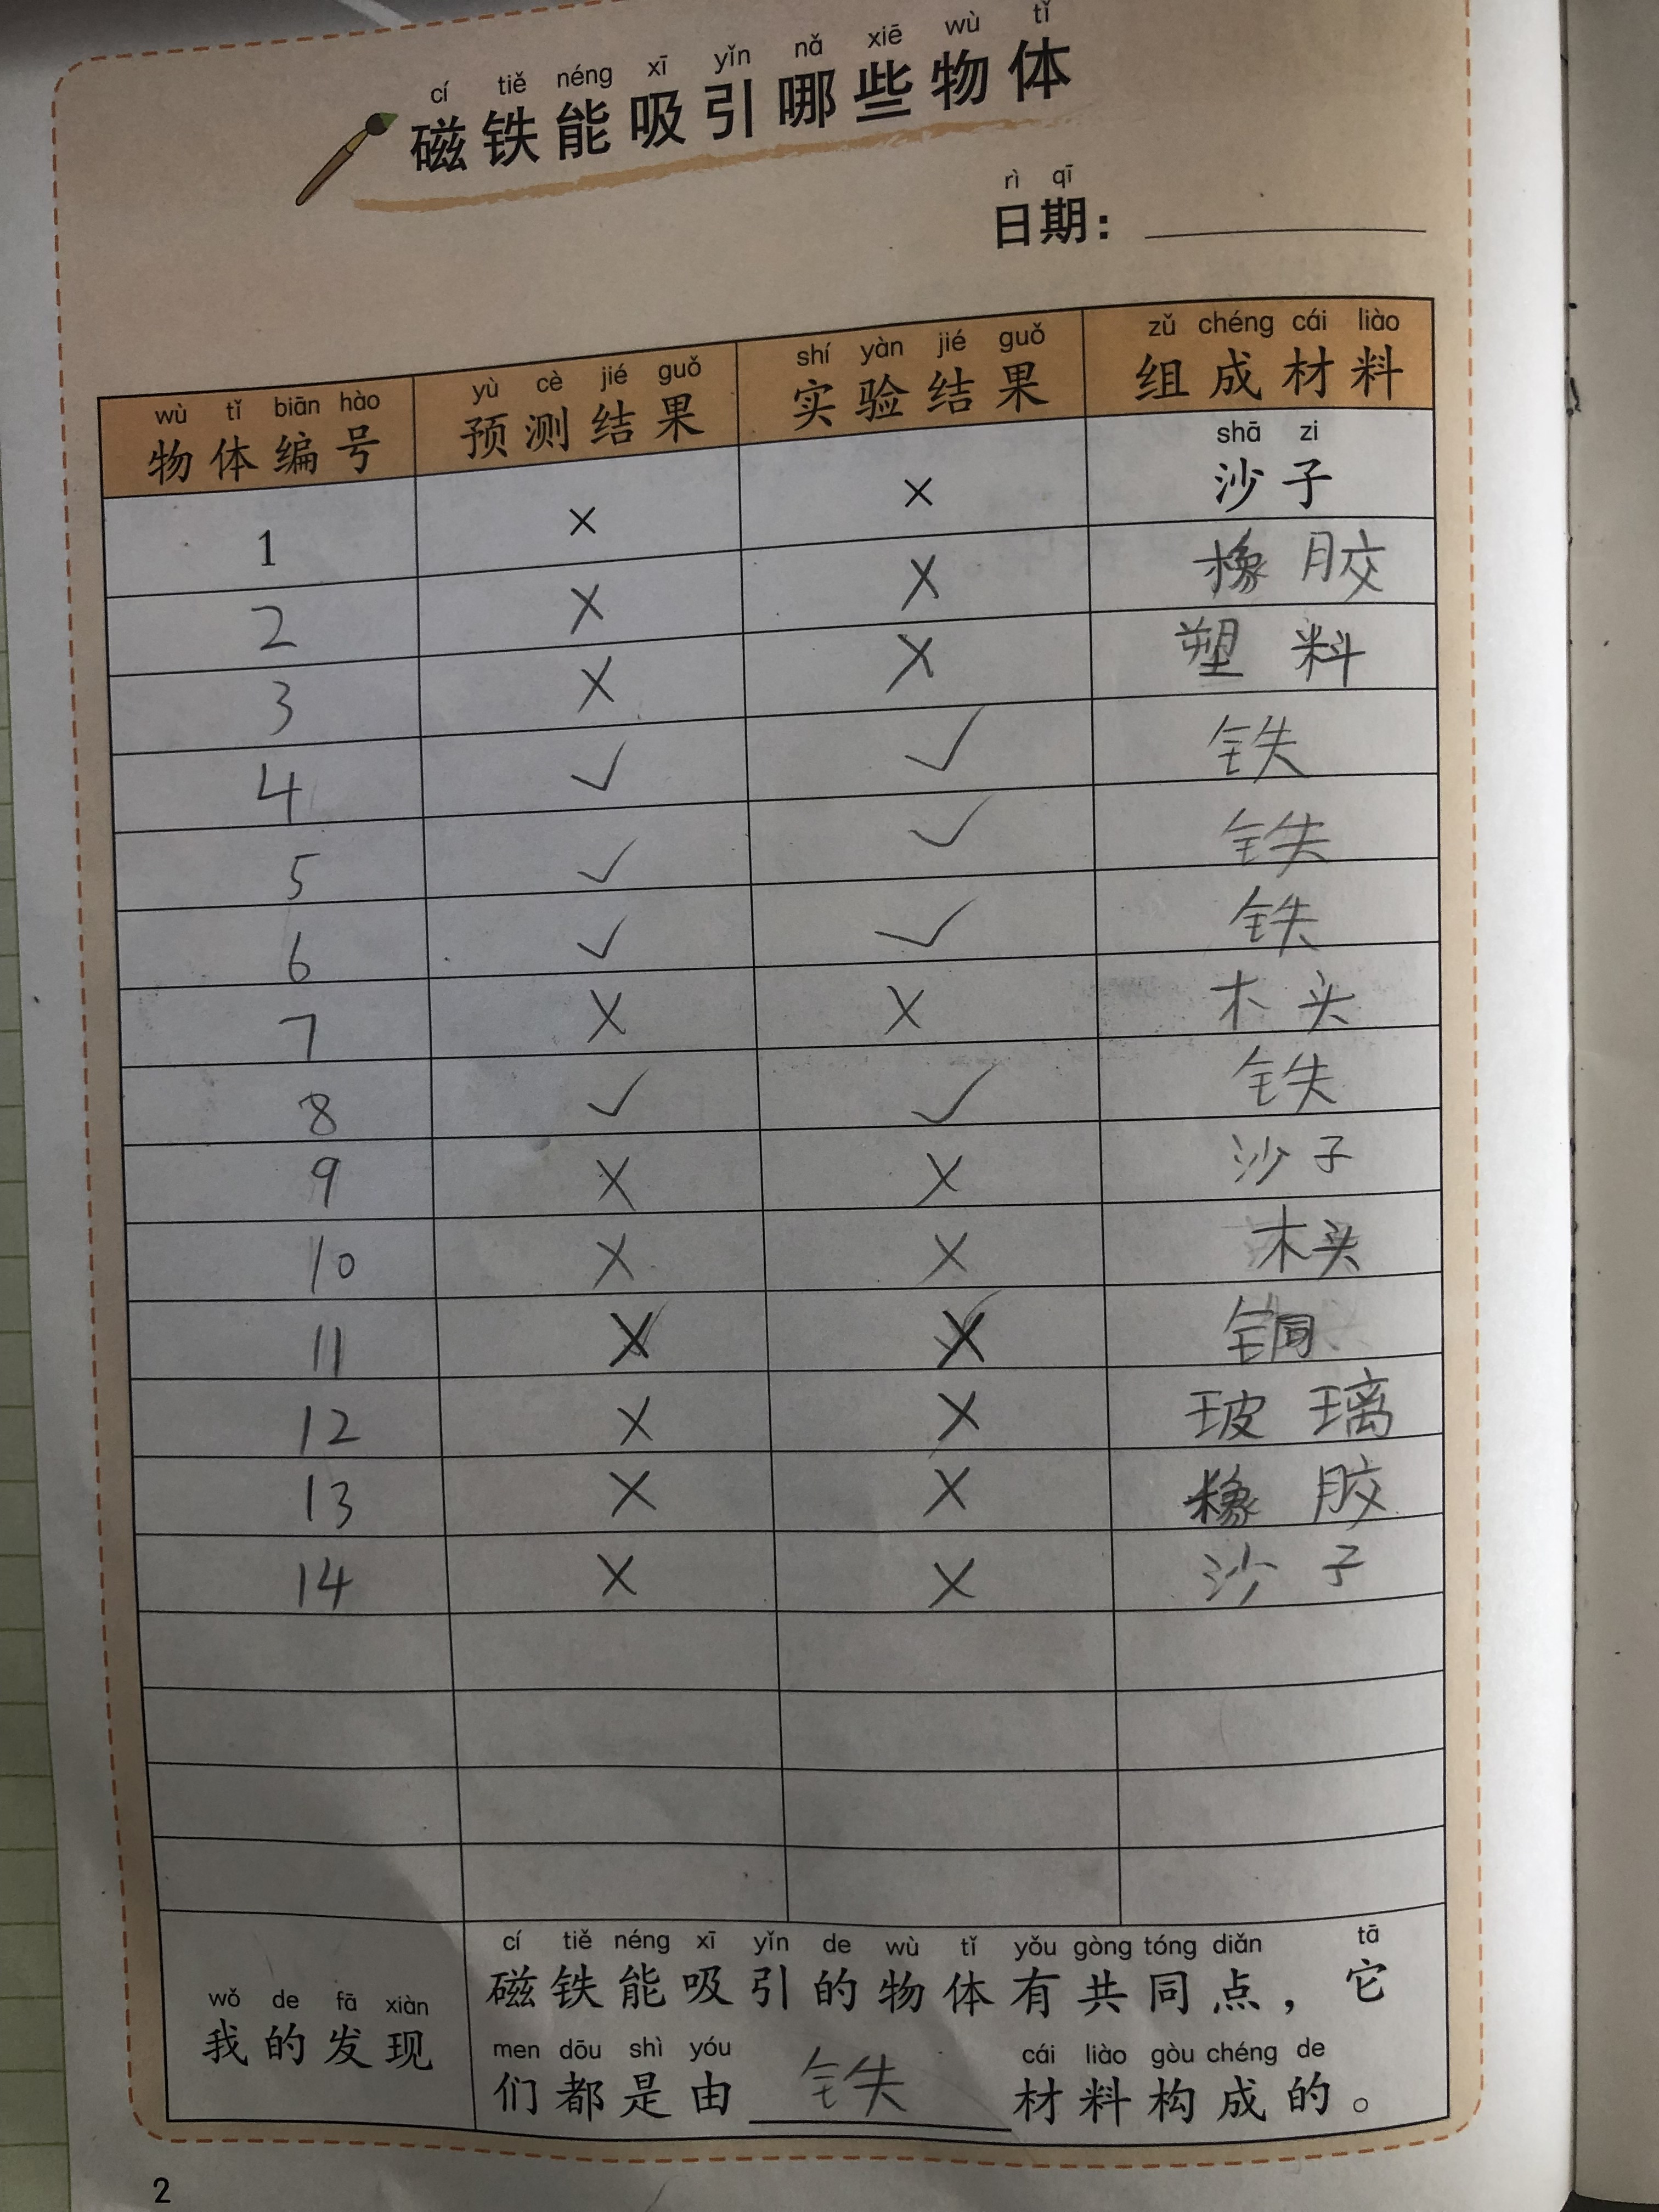 cí tiě néng xī yǐn nǎ xiē wù tǐ
磁铁能吸引哪些物体
rì qī
日期：
wù tǐ biān hào yù cè jié guǒ shí yàn jié guǒ zǔ chéng cái liào
物体编号 预测结果 实验结果 组成材料
shā zi
1 × × 沙子
2 × × 橡胶
3 × × 塑料
4 ✓ ✓ 铁
5 ✓ ✓ 铁
6 ✓ ✓ 铁
7 × × 木头
8 ✓ ✓ 铁
9 × × 沙子
10 × × 木头
11 × × 铜
12 × × 玻璃
13 × × 橡胶
14 × × 沙子
wǒ de fā xiàn
我的发现
cí tiě néng xī yǐn de wù tǐ yǒu gòng tóng diǎn tā
磁铁能吸引的物体有共同点，它
men dōu shì yóu cái liào gòu chéng de
们都是由 铁 材料构成的。
2